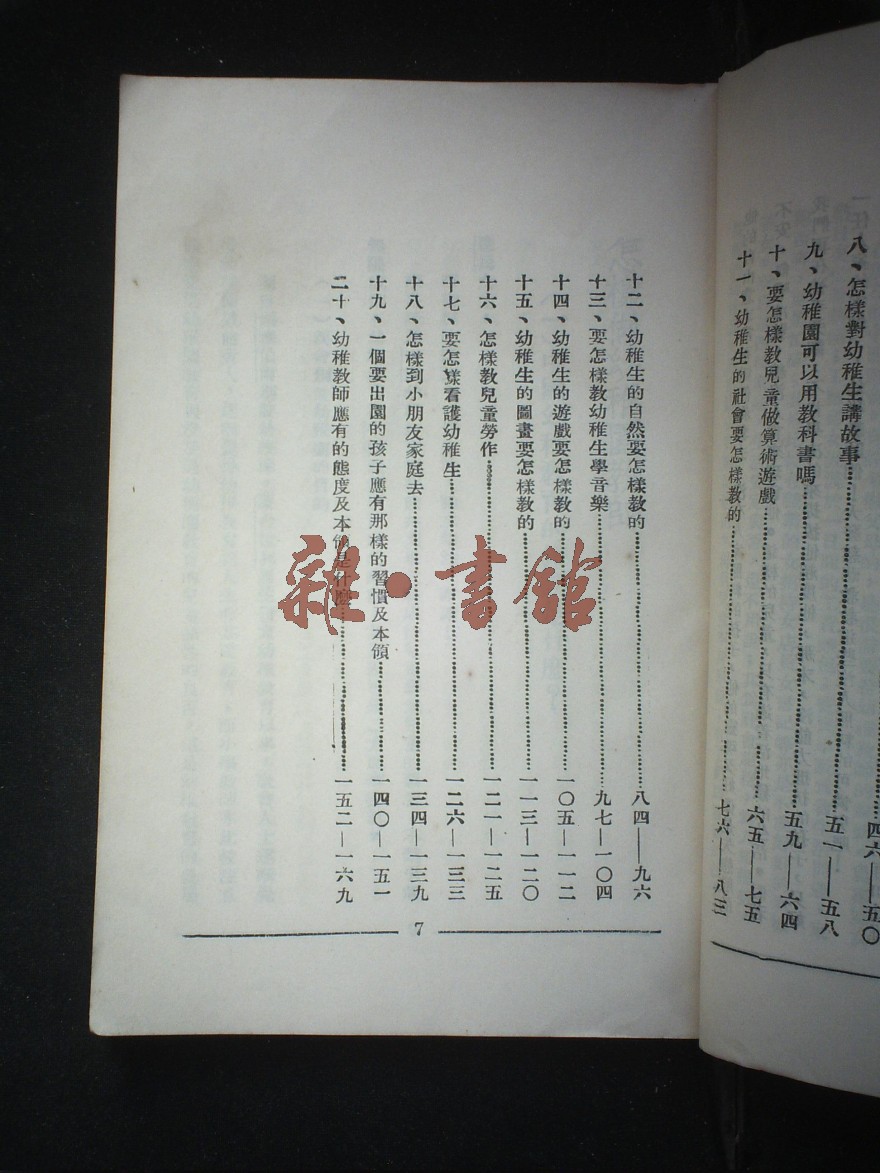 八、怎樣對幼稚生講故事……四六——五〇
九、幼稚園可以用教科書嗎……五一——五八
十、要怎樣教兒童做算術遊戲……五九——六四
十一、幼稚生的社會要怎樣教的……六五——七五
七六——八三
十二、幼稚生的自然要怎樣教的……八四——九六
十三、要怎樣教幼稚生學音樂……九七—一〇四
十四、幼稚生的遊戲要怎樣教的……一〇五—一一二
十五、幼稚生的圖畫要怎樣教的……一一三—一二〇
十六、怎樣教兒童勞作……一二一—一二五
十七、要怎樣看護幼稚生……一二六—一三三
十八、怎樣到小朋友家庭去……一三四—一三九
十九、一個要出園的孩子應有那樣的習慣及本領……一四〇—一五一
二十、幼稚教師應有的態度及本領是什麼……一五二—一六九
7
雜·書館